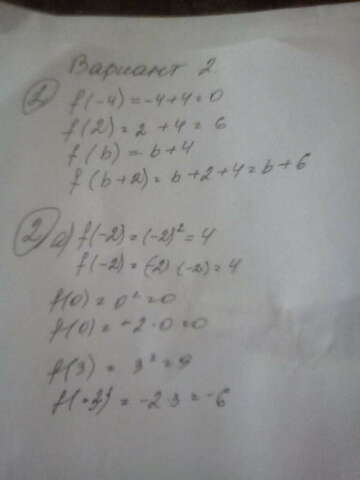 Вариант 2.
1) f(-4) = -4+4=0
f(2) = 2+4 = 6
f(b) = b+4
f(b+2) = b+2+4=b+6
2) а) f(-2) = (-2)² = 4
f(-2) = (-2)·(-2) = 4
f(0) = 0² = 0
f(0) = -2·0=0
f(3) = 3² = 9
f(-3) = -2 3 = -6